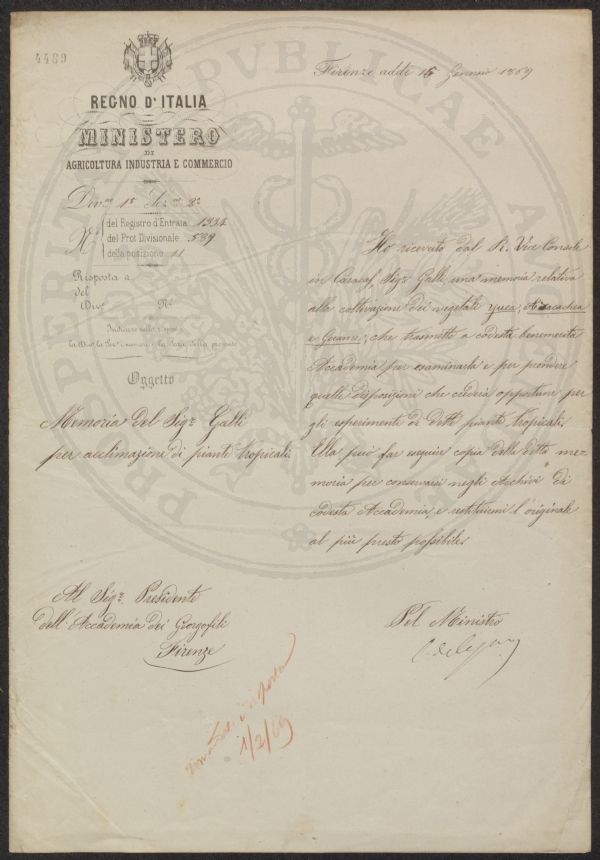 4489
REGNO D'ITALIA
MINISTERO
DI
AGRICOLTURA INDUSTRIA E COMMERCIO
Firenze addì 15 Gennaio 1869
Div.ne 1a Sez.ne 2a
N.
del Registro d'Entrata 1334
del Prot. Divisionale 589
della posizione 11
Risposta a
del
Div.e N.o
Indicare nella risposta
la Div., la Sez. i numeri e la Data della presente
Oggetto
Memoria del Sigr. Galli
per acclimazione di piante tropicali.
Ho ricevuto dal R. Vice Console
in Caracas, Sigr. Galli una memoria relativa
alla coltivazione dei vegetali yuca,
e Gocame; che trasmetto a codesta benemerita
Accademia per esaminarla e per prendere
quelle disposizioni che crederà opportune per
gli esperimenti di dette piante tropicali.
Ella può far eseguire copia della detta me-
moria per conservarsi negli Archivi di
codesta Accademia, e restituirmi l'originale
al più presto possibile.
Al Sigr. Presidente
dell'Accademia dei Georgofili
Firenze
Pel Ministro
risposta
1/2/69
PROSPERITATI PUBLICAE AUGENDAE